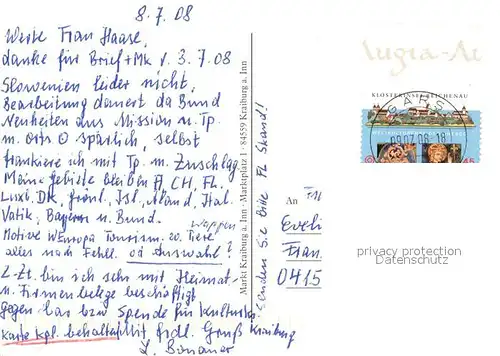 8.7.08
Werte Frau Haase,
danke für Brief+Mk v. 3.7.08
Slowenien leider nicht,
Bearbeitung dauert da Bund
Neuheiten aus Mission u. Tp.
m. Orts O spärlich, selbst
frankiere ich mit Tp. m. Zuschlag
Meine Gebiete bleiben A, CH, FL,
Luxb. DK, Grönl, Isl, Aland, Ital.
Vatik, Bayern u. Bund.
Wappen
Motive W Europa Tourism. zo. Tiere
alles nach Fehll. od Auswahl?
Z-Zt. bin ich sehr mit Heimat-
u. Firmen belege beschäftigt
gegen bar bzw Spende für Kulturkr.
Karte kpl. behalten! Mit frdl. Gruß Kraiburg
Markt Kraiburg a. Inn · Marktplatz 1 · 84559 Kraiburg a. Inn
senden Sie bitte FL Skand!
Augia-Au
KLOSTERINSEL REICHENAU
GARS
09.07.08-18
45
An
Eveli
Frau
0415
privacy protection
Datenschutz